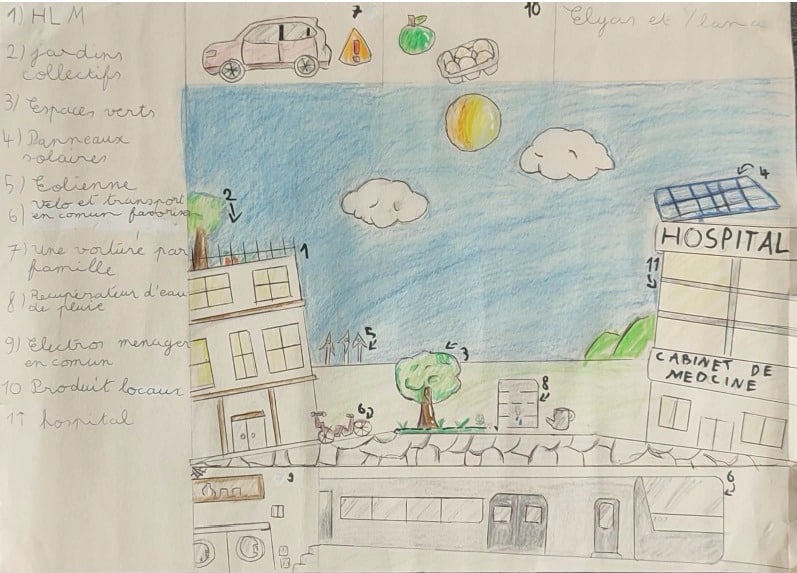 1) HLM
2) jardins
collectifs
3) Espaces verts
4) Panneaux
solaires
5) Eolienne
6) velo et transport
en comun favorise
7) une voiture par
famille
8) Recuperateur d'eau
de pluie
9) Electros menager
en comun
10 Produit locaux
11 hospital
7
10
Elyas et
2
4
1
HOSPITAL
11
5
3
CABINET DE
MEDCINE
8
6
9
6